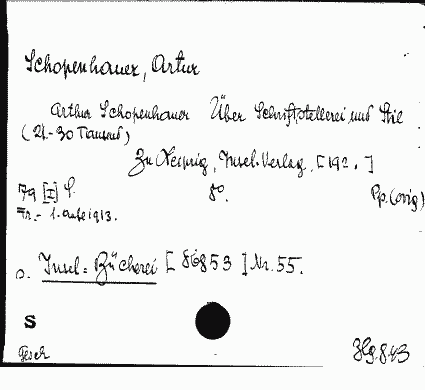 Schopenhauer, Artur
Arthur Schopenhauer Über Schriftstellerei und Stil
(21.-30 Tausend)
Zu Leipzig, Insel-Verlag, [192.]
79 [I] S. 8°. Pp. (orig)
1. Aufl 1913.
o. Insel-Bücherei [86853] Nr. 55.
S
Gesch